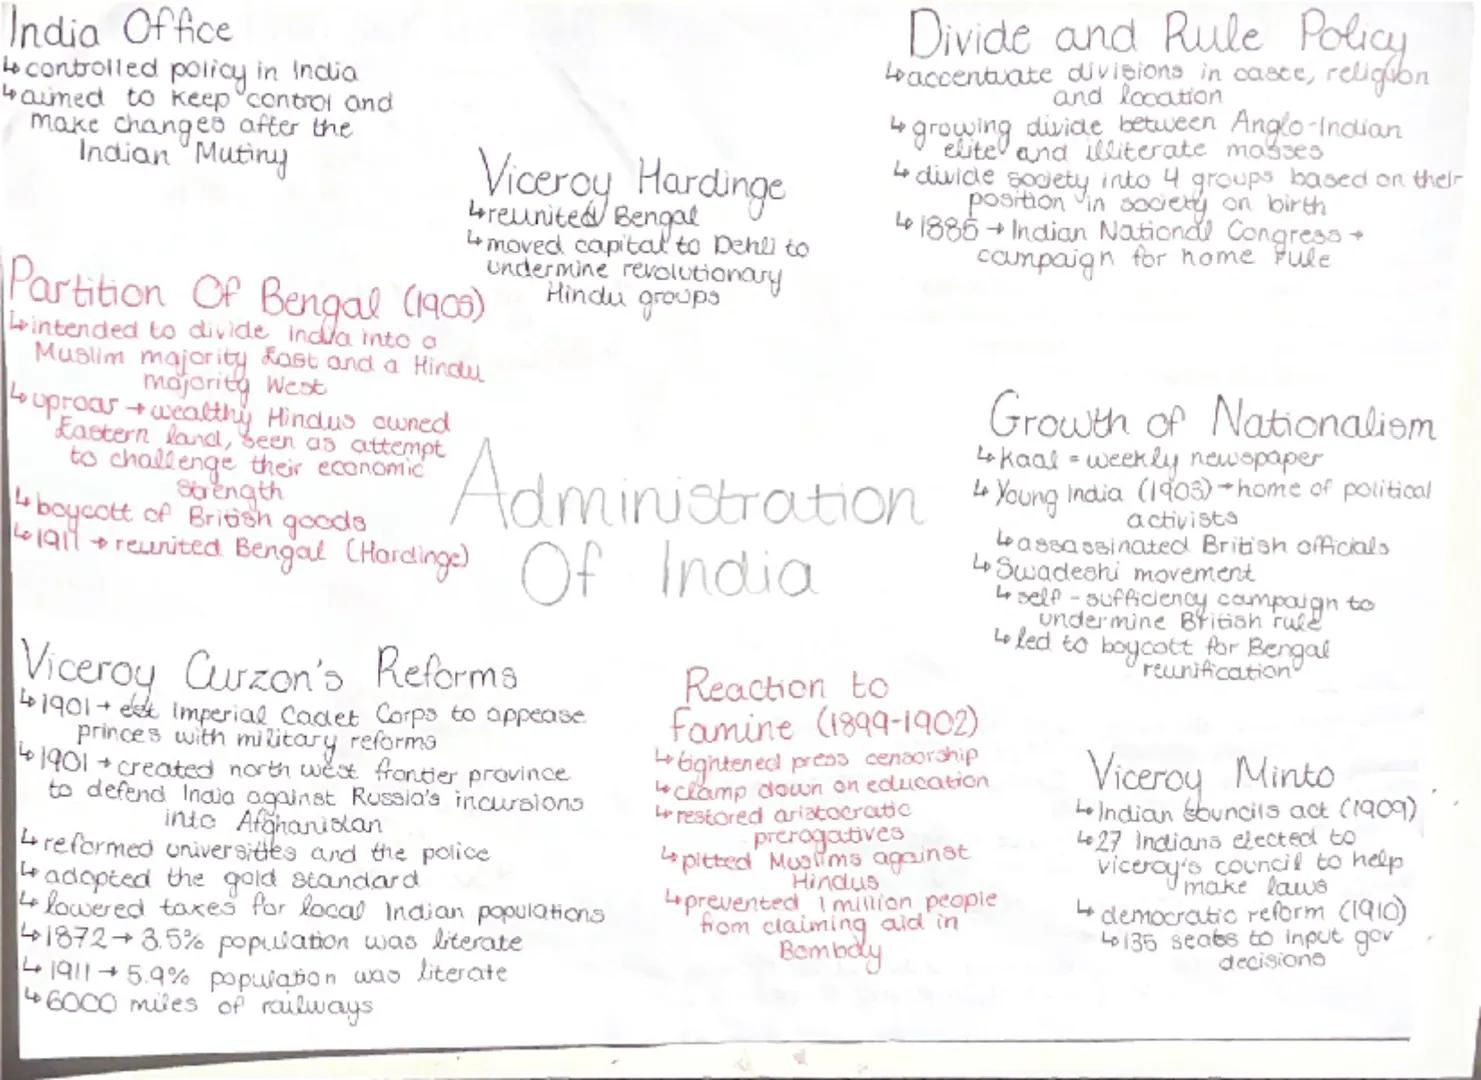 India Office
↳controlled policy in India
↳aimed to keep control and
make changes after the
Indian Mutiny
Divide and Rule Policy
↳accentuate divisions in caste, religion
and location
↳growing divide between Anglo-Indian
elite and illiterate masses
↳divide society into 4 groups based on their
position in society on birth
↳1885 → Indian National Congress →
campaign for home rule
Viceroy Hardinge
↳reunited Bengal
↳moved capital to Dehli to
undermine revolutionary
Hindu groups
Partition Of Bengal (1905)
↳intended to divide india into a
Muslim majority East and a Hindu
majority West
↳uproar → wealthy Hindus owned
Eastern land, seen as attempt
to challenge their economic
strength
↳boycott of British goods
↳1911 → reunited Bengal (Hardinge)
Administration
Of India
Growth of Nationalism
↳Kaal = weekly newspaper
↳Young India (1905) → home of political
activists
↳assassinated British officials
↳Swadeshi movement
↳self-sufficiency campaign to
undermine British rule
↳led to boycott for Bengal
reunification
Viceroy Curzon's Reforms
↳1901 → est Imperial Cadet Corps to appease
princes with military reforms
↳1901 → created north west frontier province
to defend India against Russia's incursions
into Afghanistan
↳reformed universities and the police
↳adopted the gold standard
↳lowered taxes for local Indian populations
↳1872 → 3.5% population was literate
↳1911 → 5.9% population was literate
↳6000 miles of railways
Reaction to
Famine (1899-1902)
↳tightened press censorship
↳clamp down on education
↳restored aristocratic
prerogatives
↳pitted Muslims against
Hindus
↳prevented 1 million people
from claiming aid in
Bombay
Viceroy Minto
↳Indian councils act (1909)
↳27 Indians elected to
viceroy's council to help
make laws
↳democratic reform (1910)
↳135 seats to input gov
decisions